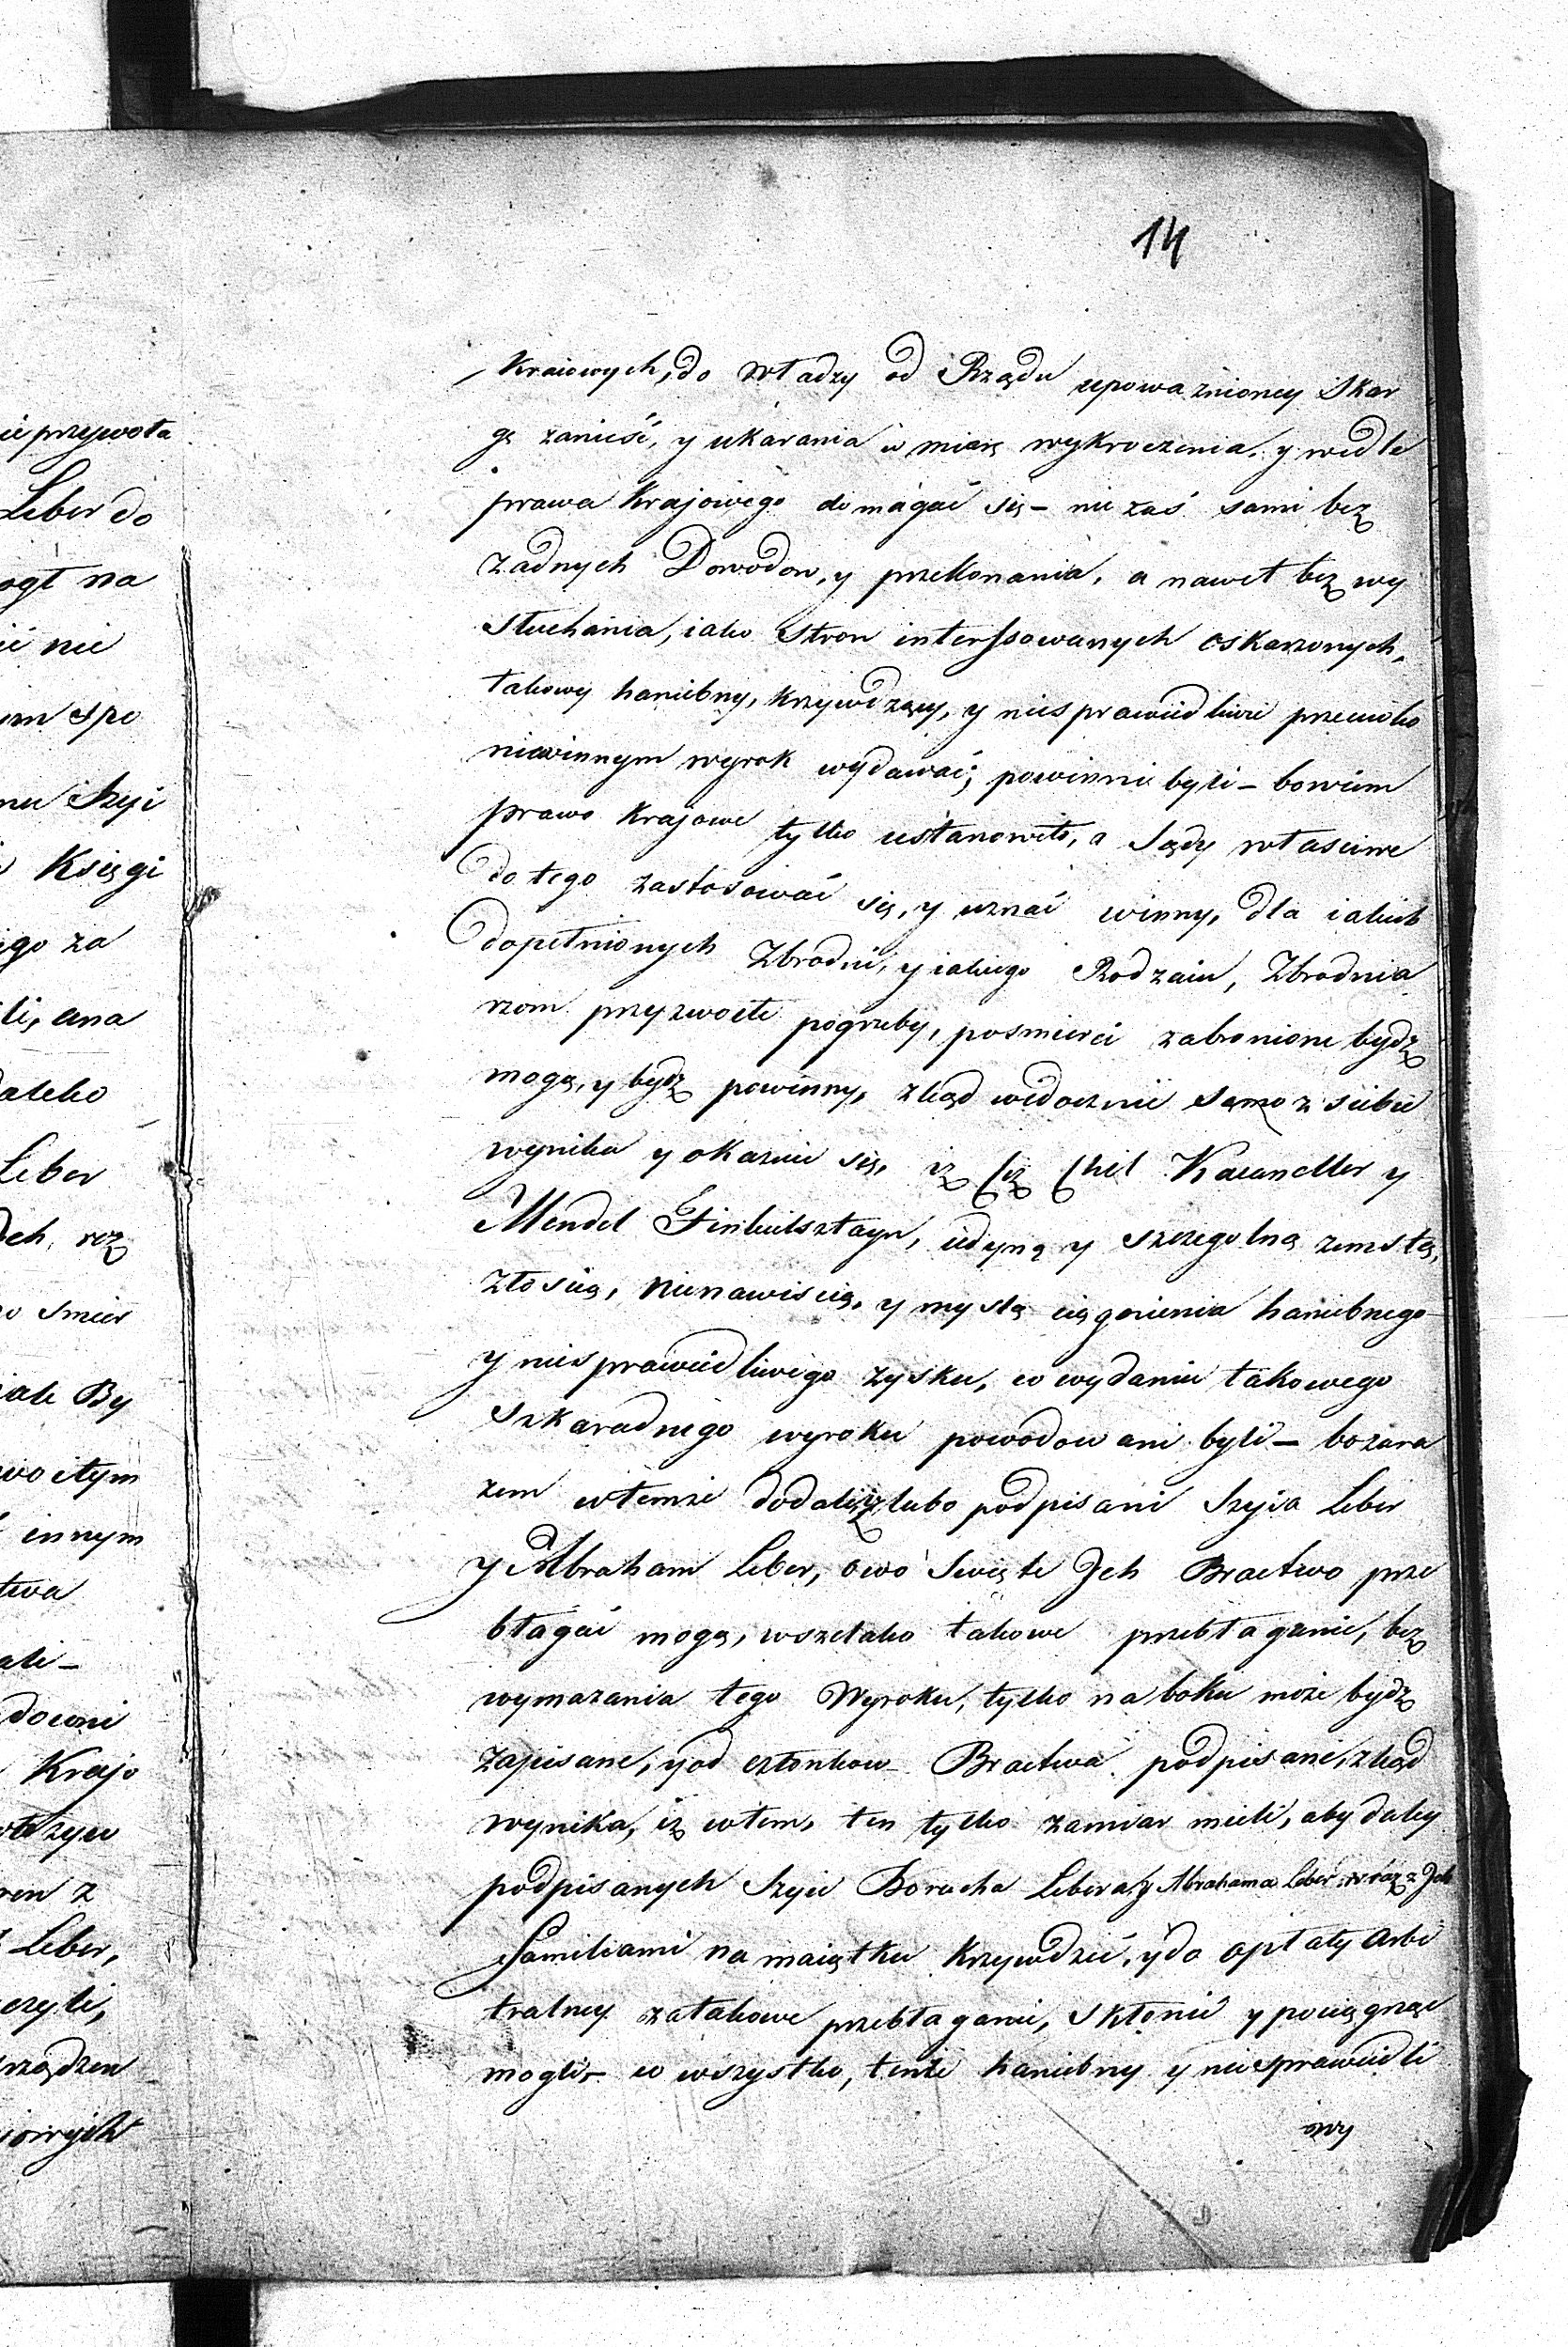 14
Kraiowych, do władzy od Rządu upoważnioney Skar
gę zanieść, y ukarania w miarę wykroczenia, y wedle
prawa Krajowego domagać się – nie zaś sami bez
żadnych Dowodow, y przekonania, a nawet bez wy
słuchania, iako Stron interssowanych oskarzonych,
takowy haniebny, krzywdzący, y niesprawiedliwie przeciwko
niewinnym wyrok wydawać; powinni byli – bowiem
prawo Krajowe tylko ustanowiło, a Sądy właściwe
do tego zastosować się, y uznać winny, dla iakich
dopełnionych Zbrodni, y iakiego Rodzaiu, Zbrodnia
rzom przyzwoite pogrzeby, po smierci zabronione bydz
mogą, y bydz powinny, zkąd widocznie Samo z siebie
wynika y okazuie się, iz Chil y
Mendel Finkielsztayn, iedyną y szczegolną zemstą,
złością, nienawiscią, y myslą ciągnienia haniebnego
y niesprawiedliwego zysku, co wydaniu takowego
szkaradnego wyroku powodowani byli – bo zara
zem w temze dodali, iz lubo podpisani Szyia Leber
y Abraham Leber, owo Swięte Jch Bractwo prze
błagać mogą, wszelako takowe przebłaganie, bez
wymazania tego Wyroku, tylko na boku może bydz
zapisane, y od członkow Bractwa podpisane, zkąd
wynika, iz w tem, ten tylko zamiar mieli, aby daley
podpisanych Szyie Borucha Lebera y Abrahama Leber wraz z Jch
Familiami na maiątku krzywdzić, y do opłaty arbi
tralney za takowe przebłaganie, skłonić y pociągnąć
mogli – co wszystko, tenże haniebny y niesprawiedli
wy
ie przywoła
Leber do
ogł na
ić nie
spo
mu Szyi
Księgi
ego za
li, ana
Leber
smier
By
innym
ali –
Krajo
ren z
Leber,
czyli,
rządzen
iowych